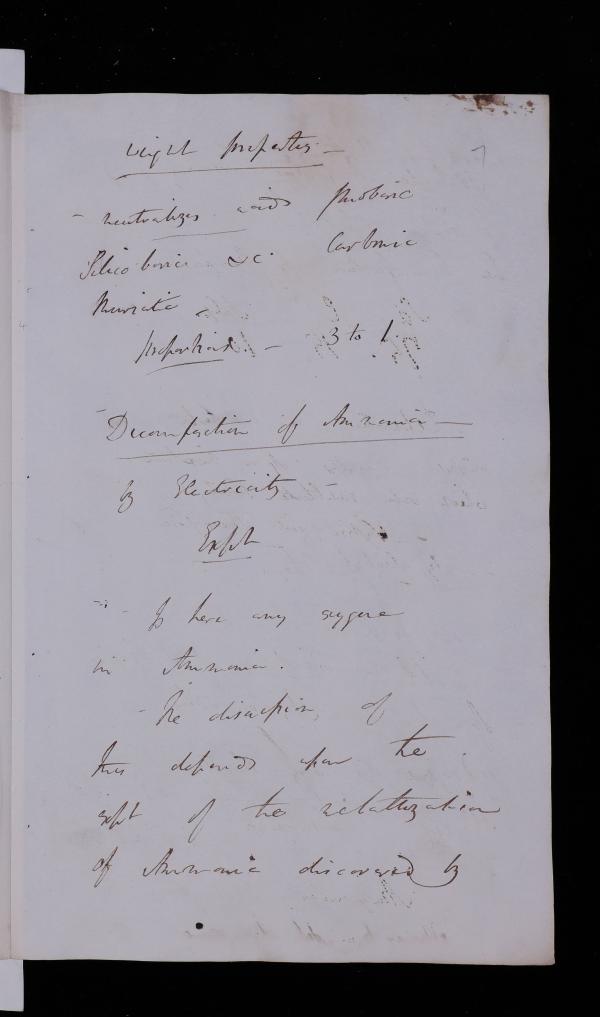 weight properties —
7
- neutralizes acids fluoboric
Silico boric &c. Carbonic
Muriatic
proportions. — 3 to 1.
- Decomposition of Ammonia —
by Electricity —
Expt
- Is here any oxygene
in Ammonia.
- The discussion, of
this depends upon the
expt of the metallization
of Ammonia discovered by